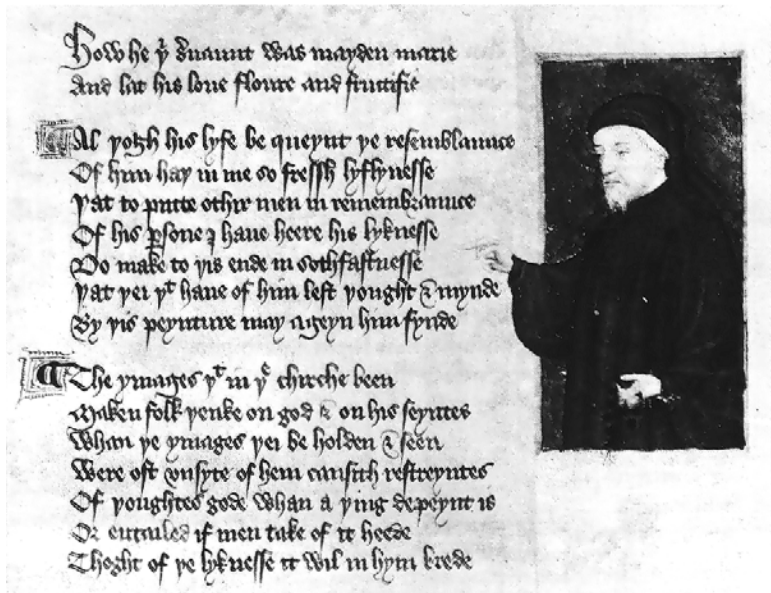 How he þͥ s̄uaunt was mayden marie
And lat his loue floure and fructifie
Al þogh his lyfe be queynt þe resemblaunce
Of him haþ in me so fressh lyflynesse
Þat to putte othir men in remembraunce
Of his ꝑsone I haue heere his lyknesse
Do make to þis ende in sothfastnesse
Þat þei þͭ haue of him left þought & mynde
By þis peynture may ageyn him fynde
The ymages þͭ in þͤ chirche been
Maken folk þenke on god & on his seyntes
Whan þe ymages þei be holden & seen
Were oft vnsyte of hem causith restreyntes
Of þoughtes gode whan a þing depeynt is
Or entailed if men take of it heede
Thoght of þe lyknesse it wil in hym brede